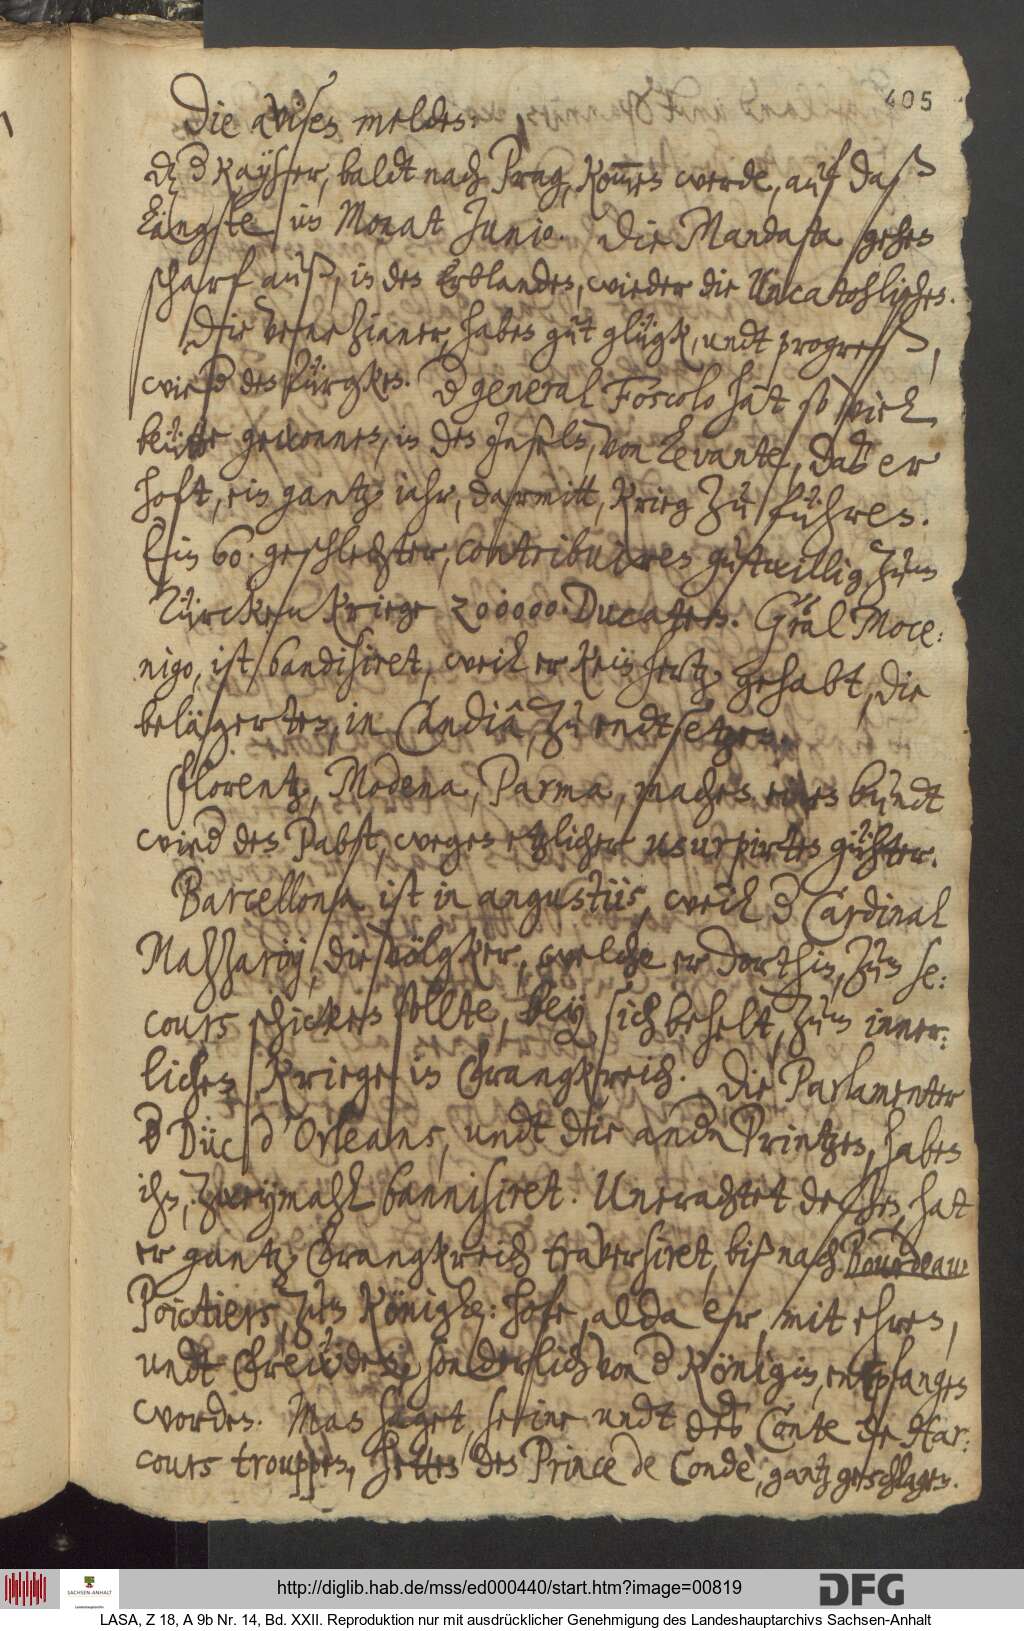 405
Die avisen melden:
dz d Kayser, baldt nach Prag, kom̅en werde, auf daß
längste im Monat Junio. Die Mandata gehen
scharf auß, in den Erblanden, wieder die Uncatohlischen.
Die Venezianer, haben gut glügk, undt progreß,
wied den Türgken. D general Foscolo hat so viel
beütte gewonnen, in den Inseln, von Levante, daß er
hoft, ein gantz iahr, darmitt, Krieg zu führen.
Ein 60. geschlechter, contribuiren gutwillig, zum
Türcken kriege 200000. Ducaten. Gräl Moce:
nigo, ist bandisiret, weil er kein hertz gehabt, die
belägerten, in Candia, zu endtsetzen.
Florentz, Modena, Parma, machen einen bundt
wied den Pabst, wegen etzlicher usurpirten gühter.
Barcellona ist in angustiis, weil d Cardinal
Mazzariny, die völgker, welche er dorthin, zum se:
cours schicken sollte, bey sich behelt, zum inner:
lichen Kriege in Frangkreich. Die Parlamenter
d Düc d'Orleans, undt die andn Printzen, haben
ihn, zweymahl bannisiret. Unerachtet deßen, hat
er gantz Frangkreich traversiret, biß nach Bourdeaux
Poictiers, zum Königl: hofe, alda er, mit ehren,
undt freüden, sonderlich von d Königin, entpfangen
worden. Man saget, seine undt deß Conte de Har:
cours trouppen, hetten den Prince de Condè, gantz geschlagen.
http://diglib.hab.de/mss/ed000440/start.htm?image=00819
DFG
SACHSEN-ANHALT
LASA, Z 18, A 9b Nr. 14, Bd. XXII. Reproduktion nur mit ausdrücklicher Genehmigung des Landeshauptarchivs Sachsen-Anhalt